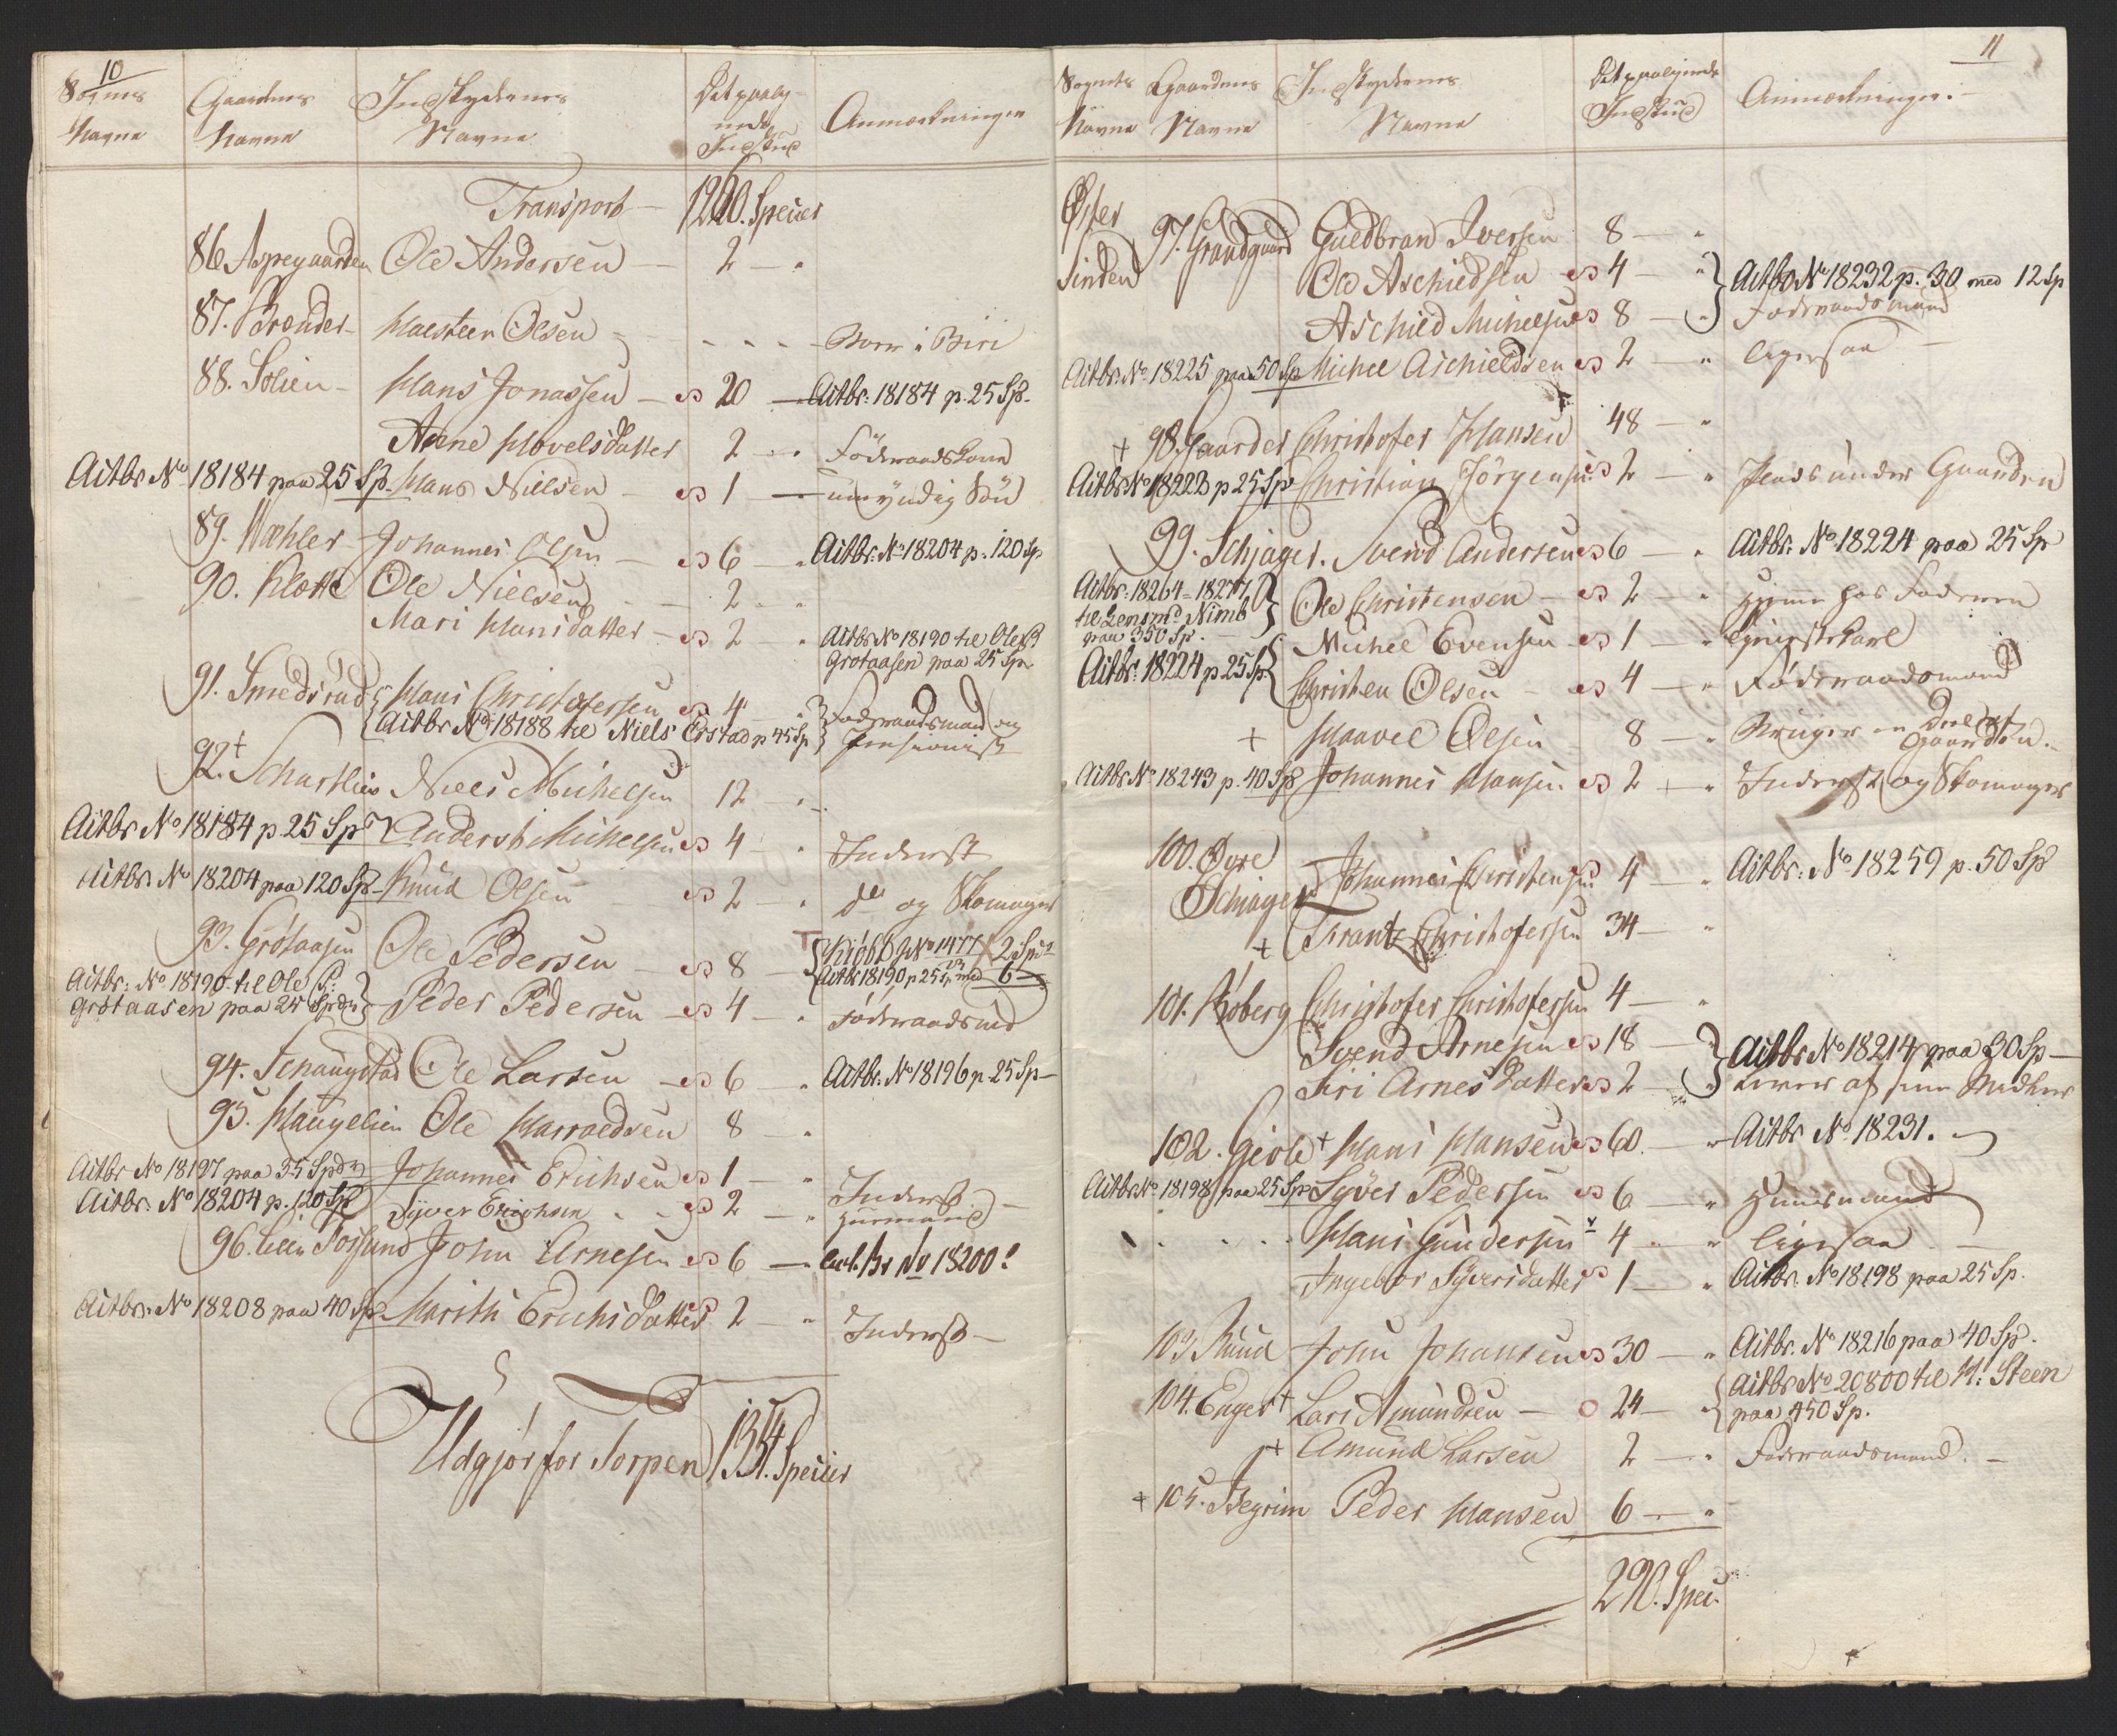 10
Sognes Navne
Gaardens Navne
Indskydernes Navne
Det paaligende Indskud
Anmærkninger
Transport — 1260. Specier
86 Aspegaarden Ole Andersen — 2 — "
87. Brænder- Halsteen Olsen - - - - - Boer i Biri
88. Solien - Hans Jonassen — 20 — Actbr: 18184 p. 25 Sp.
Arene Hovelsdatter 2 — " Föderaadskone
Actbr No 18184 paa 25 Sp. Hans Nielsen — 1 — umÿndig Sön
89. Wæhler - Johannes Olsen — 6 — " Actbr. No 18204 p. 120 Sp
90. Klotte Ole Nielsen — 2 — "
Mari Hansdatter — 2 — " Actbr No 18190 til Ole P. Grotaasen paa 25 Sp.
91. Smedsrud Hans Christofersen — 4 — " Föderaadsmand og Pensionist
Actbr No 18188 til Niels Erstad p 45 Sp
92. + Schartlien Niels Michelsen 12 — "
Actbr No 18184 p. 25 Sp Anders Michelsen 4 — " Inderst
Actbr. No 18204 paa 120 Sp - Knud Olsen — 2 — " do og Skomager
93. Grötaasen Ole Pedersen — 8 — No 1477 2 Sp
Actbr 18190 p 25 Sp med 6 —
Actbr: No 18190 til Ole P: Grötaasen paa 25 Spdr Peder Pedersen — 4 — " Föderaadsmd
94. Schaugstad Ole Larsen — 6 — " Actbr. No 18196 p. 25 Sp —
95. Haugelien Ole Harraldsen 8 — "
Actbr No 18197 paa 35 Spdr Johannes Erichsen 1 — " Inderst —
Actbr. No 18204 p. 120 Sp Syver Erichsen . . 2 — " Huusmand
96. Lien Torsund John Arnesen 6 — Act. Br No 18200!
Actbr. No 18208 paa 40 Sp. Marith Erichsdatter 2 — " Inderst —
Udgjør for Torpen 1354. Specier
11
Sognets Navne
Gaardens Navne
Indskydernes Navne
Det paaligende Indskud
Anmærkninger. —
Øster Sinden
97. Grandgaard Guldbran Iversen 8 — "
Ole Aschildsen 4 — " Actbr No 18232 p. 30 med 12 Sp
Aschild Michelsen 8 — " Föderaadsmand
Actbr. No 18225 paa 50 Sp Michel Aschieldsen 2 — " ligesaa —
+ 98. Gaarder Christofer Hansen 48 — "
Actbr No 18222 p 25 Sp Christian Jörgensen 2 — " Plads under Gaarden
99. Schjager. Svend Andersen 6 — " Actbr. No 18224 paa 25 Sp
Actbr: 18264 = 18277 til Lensmd Nimb paa 350 Sp. — Ole Christensen — 2 — " Hjeme hos Faderen
Michel Evensen 1 — "
Actbr. 18224 p 25 Sp. Christen Olsen — 4 — " Föderaadsmand
+ Haavel Olsen 8 — " Bruger en Deel af Gaarden. —
Actbr No 18243 p. 40 Sp Johannes Hansen 2 — " Inderst og Skomager
100. Øvre Schjager Johannes Christensen 4 — " Actbr: No 18259 p. 50 Sp
+ Frantz Christofersen 34 — "
101. Røberg Christofer Christofersen 4 — "
Svend Arnesen 18 — Actbr No 18214 paa 30 Sp —
Siri Arnesdatter 2 — Lever af sine Midler
102. Giøle + Hans Hansen 60. — " Actbr No 18231. —
Actbr No 18198 paa 25 Sp Syver Pedersen 6 — " Huusmand
. . . . Hans Gundersen 4 — " ligesaa —
Ingebor Syversdatter 1 — " Actbr. No 18198 paa 25 Sp.
103 Ruud John Johansen 30 — " Actbr. No 18216 paa 40 Sp.
104. Enger + Lars Amundsen — 24 — " Actbr No 20800 til H. Steen paa 450 Sp.
+ Amund Larsen 2 — " Föderaadsmand. —
+ 105. Peder Hansen 6 — "
290. Speci.